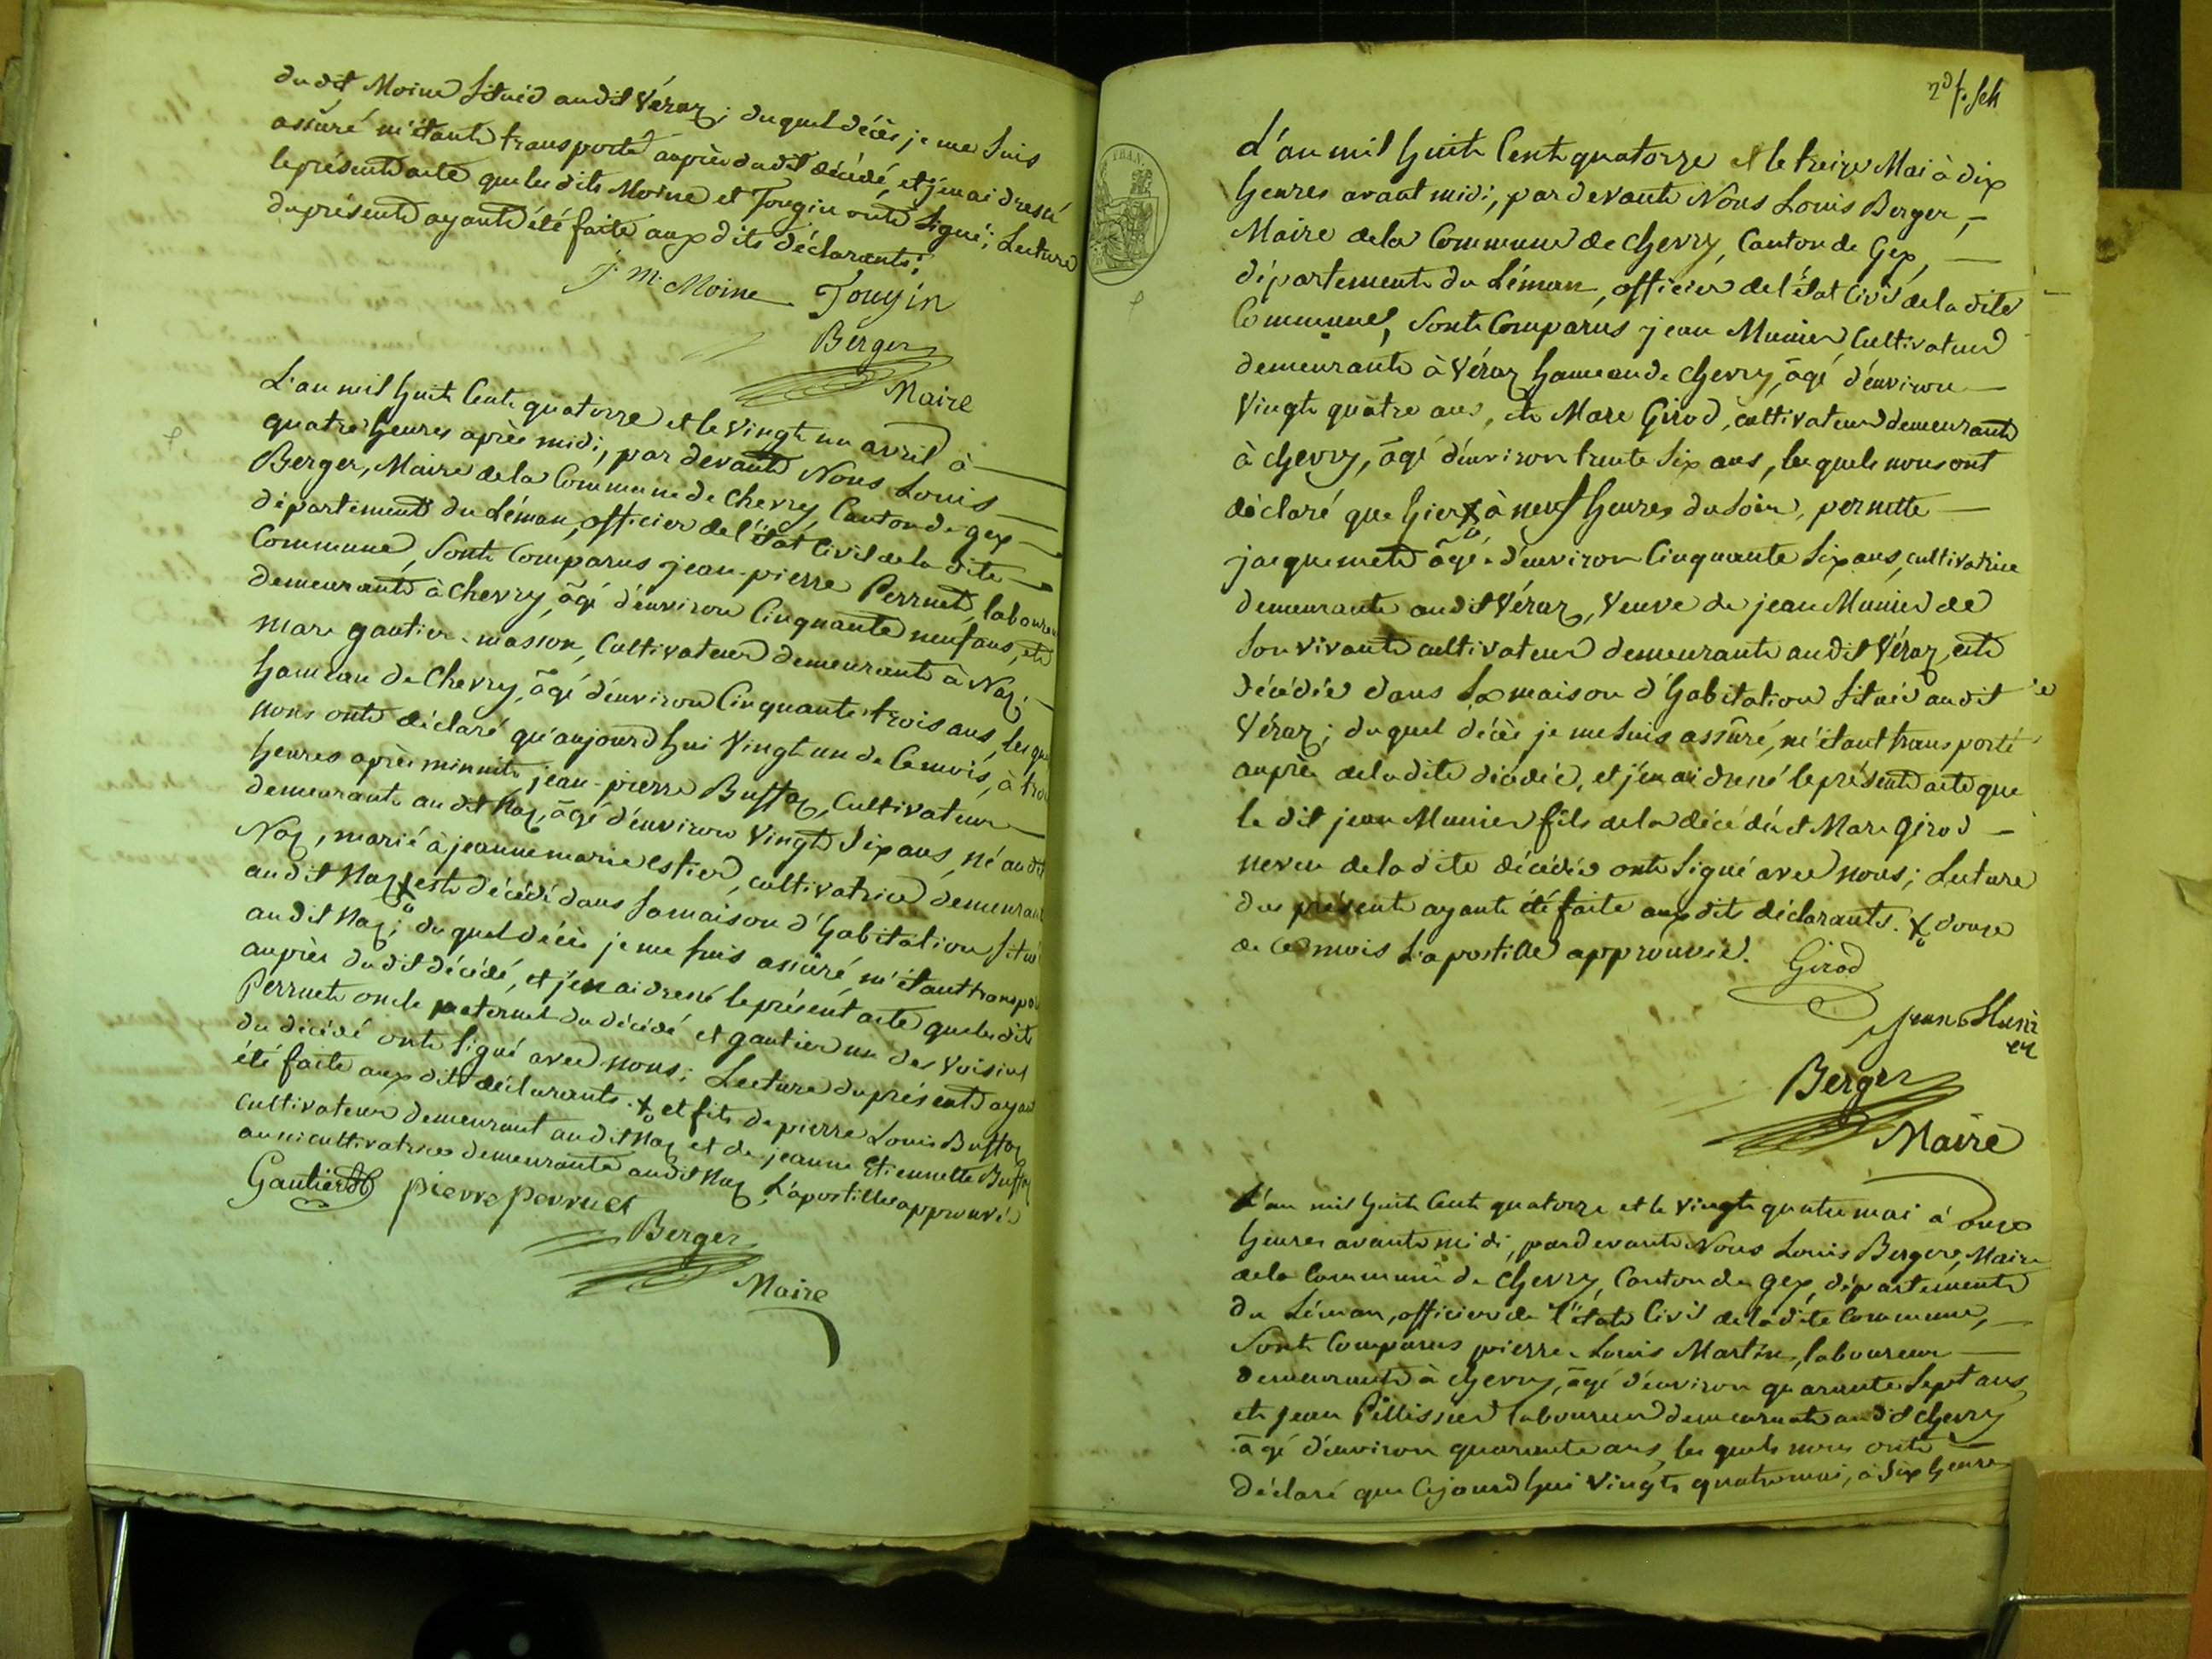 dudit Moine située audit Véraz; duquel décès je me suis
assuré m'étant transporté auprès dudit décédé, et j'en ai dressé
le présent acte que les dits Moine et Tougin ont signé; Lecture
du présent ayant été faite aux dits déclarants.
J. M. Moine Tougin
Berger
Maire
L'an mil huit cent quatorze et le vingt un avril à
quatre heures après midi, par devant Nous Louis
Berger, Maire de la Commune de Chevry, Canton de gex
département du Léman, officier de l'état Civil de la dite
Commune, sont Comparus jean-pierre Perruet, laboureu
demeurant à Chevry, âgé d'environ Cinquante neuf ans, et
marc gautier-masson, Cultivateur demeurant à Naz,
hameau de Chevry, âgé d'environ Cinquante trois ans, les que
nous ont déclaré qu'aujourd'hui vingt un de Ce mois, à troi
heures après minuit, jean-pierre Buffaz, Cultivateur
demeurant au dit Naz, âgé d'environ vingt six ans, né au dit
Naz, marié à jeanne marie estier, cultivatrice demeurant
au dit Naz x est décédé dans sa maison d'habitation située
au dit Naz; du quel décès je me suis assuré, m'étant transpor
auprès du dit décédé, et j'en ai dressé le présent acte que les dits
Perruet oncle paternel du décédé et gautier un des voisins
du décédé ont signé avec nous; Lecture du présent ayan
été faite aux dits déclarants. x et fils de pierre Louis Buffaz
cultivateur demeurant au dit Naz et de jeanne Etiennette Buffaz
aussi cultivatrice demeurante au dit Naz, L'apostille approuvée
Gautier pierre perruet
Berger
Maire
2d f. Seh
L'an mil huit Cent quatorze et le treize Mai à dix
heures avant midi, par devant Nous Louis Berger,
Maire de la Commune de chevry, Canton de Gex,
département du Léman, officier de l'état Civil de la dite
Commune, sont Comparus jean Munier Cultivateur
demeurant à Véraz hameau de chevry, âgé d'environ
vingt quatre ans, et Marc Girod, cultivateur demeurant
à chevry, âgé d'environ trente six ans, les quels nous ont
déclaré que hier x à neuf heures du soir, pernette
jacquemet âgée d'environ Cinquante six ans, cultivatrice
demeurante au dit Véraz, veuve de jean Munier de
son vivant cultivateur demeurant au dit Véraz, est
décédée dans sa maison d'habitation située au dit
Véraz; du quel décès je me suis assuré, m'étant transporté
auprès de la dite décédée, et j'en ai dressé le présent acte que
le dit jean Munier fils de la décédée et Marc Girod
neveu de la dite décédée ont signé avec nous; Lecture
du présent ayant été faite aux dits déclarants. x douze
de Ce mois L'apostille approuvée.
Girod
jean Muni
er
Berger
Maire
L'an mil huit Cent quatorze et le vingt quatre mai à onze
heures avant midi, par devant Nous Louis Berger, Maire
de la Commune de Chevry, Canton de gex, département
du Léman, officier de l'état Civil de la dite Commune,
Sont Comparus pierre-Louis Martin, laboureur
demeurant à chevry, âgé d'environ quarante sept ans,
et jean Pellissier laboureur demeurant au dit chevry
âgé d'environ quarante ans, les quels nous ont
déclaré que Cejourd'hui vingt quatre mai, à six heures